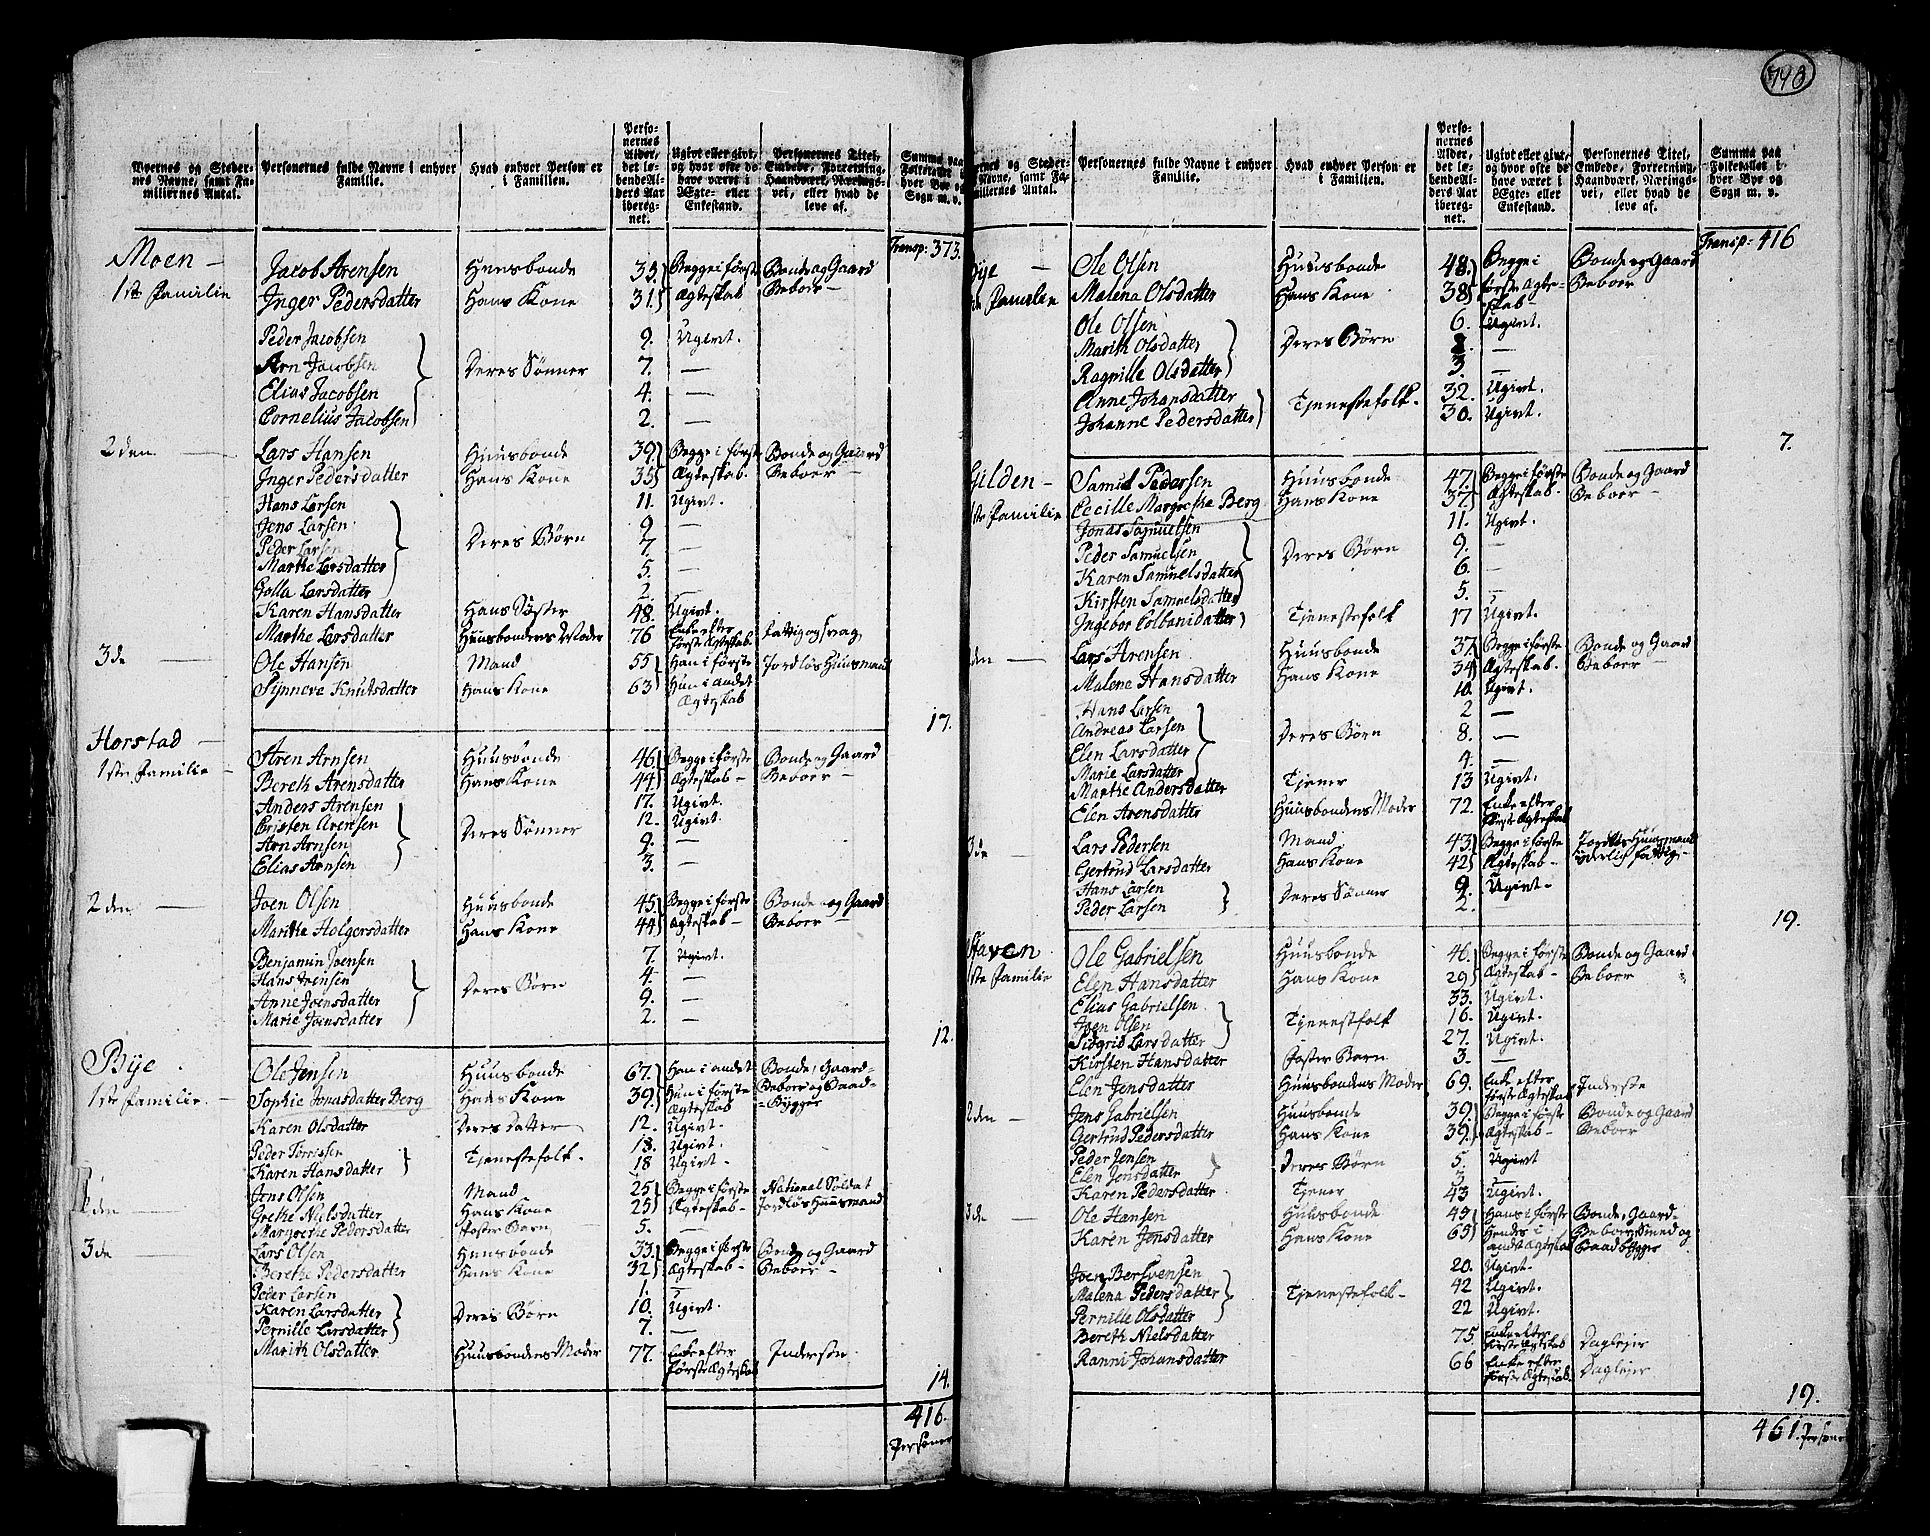 740
Byernes og Steder-
nes Navne, samt Fa-
miliernes Antal.
Personernes fulde Navne i enhver
Familie.
Hvad enhver Person er
i Familien.
Perso-
nernes
Alder,
det le-
bende Al-
ders Aar
iberegnet.
Ugivt eller givt,
og hvor ofte de
have været i
Ægte- eller
Enkestand.
Personernes Titel,
Embede, Forretning,
Haandværk, Nærings-
vei, eller hvad de
leve af.
Summa paa
Folketallet i
hver Bye og
Sogn m. v.
Transp: 373.
Moen
1ste Familie
Jacob Arensen Huusbonde 35. Begge i første Bonde og Gaard
Inger Pedersdatter Hans Kone 31. Ægteskab Beboer
Peder Jacobsen 9. Ugivt.
Arn Jacobsen Deres Sønner 7. —
Elias Jacobsen 4. —
Cornelius Jacobsen 2. —
2den Lars Hansen Huusbonde 39. Begge i første Bonde og Gaard
Inger Pedersdatter Hans Kone 35 Ægteskab. Beboer
Hans Larsen 11. Ugivt.
Jens Larsen 9 —
Peder Larsen Deres Børn 7. —
Marthe Larsdatter 5. —
Golla Larsdatter 2. —
Karen Hansdatter Hans Søster 48. Ugivt.
Marthe Larsdatter Huusbondens Moder 76 Enke efter første Ægteskab. Fattig og svag,
3de Ole Hansen Mand 55 Han i første Jordløs Huusmand
Synneve Knudsdatter Hans Kone 63 Hun i andet Ægteskab
17.
Horstad
1ste Familie
Aren Arnsen Huusbonde 46. Begge i første Bonde og Gaard
Bereth Arensdatter Hans Kone 44. Ægteskab Beboer
Anders Arensen 17. Ugivt.
Cristen Arensen Deres Sønner 12. Ugivt.
Arn Arnsen 9. —
Elias Arnsen 3. —
2den Joen Olsen Huusbonde 45. Begge i første Bonde og Gaard
Marithe Holgersdatter Hans Kone 44 Ægteskab Beboer
Benjamin Joensen 7. Ugivt.
Hans Joensen Deres Børn 4. —
Anne Joensdatter 9. —
Marie Joensdatter 2. —
12.
Bye
1ste Familie
Ole Jensen Huusbonde 67. Han i andet Bonde, Gaard-
Sophie Jonasdatter Berg Hans Kone 39. Hun i første Ægteskab Beboer og Baad-Bygger
Karen Olsdatter Deres Datter 12. Ugivt.
Peder Tørrissen Tjenestefolk. 18. Ugivt.
Karen Hansdatter 18 Ugivt.
2den Jens Olsen Mand 25 Begge i første National Soldat
Grethe Nielsdatter Hans Kone 25 Ægteskab Jordløs Huusmand
Margrethe Pedersdatter Foster Barn 5. —
3de Lars Olsen Huusbonde 33. Begge i første Bonde og Gaard
Berethe Pedersdatter Hans Kone 32 Ægteskab Beboer
Peder Larsen 1. —
Karen Larsdatter Deres Børn 10. Ugivt.
Pernille Larsdatter 7. —
Marith Olsdatter Huusbondens Moder 77. Enke efter første Ægteskab Inderste
14.
416.
Personer
Byernes og Steder-
nes Navne, samt Fa-
miliernes Antal.
Personernes fulde Navne i enhver
Familie.
Hvad enhver Person er
i Familien.
Perso-
nernes
Alder,
det le-
bende Al-
ders Aar
iberegnet.
Ugivt eller givt,
og hvor ofte de
have været i
Ægte- eller
Enkestand.
Personernes Titel,
Embede, Forretning,
Haandværk, Nærings-
vei, eller hvad de
leve af.
Summa paa
Folketallet i
hver Bye og
Sogn m. v.
Transp: 416
Bye Ole Olsen Huusbonde 48. Begge i Bonde og Gaard
Familie Malena Olsdatter Hans Kone 38. første Ægteskab Beboer
Ole Olsen 6. Ugivt.
Marith Olsdatter Deres Børn —
Ragnille Olsdatter 3. —
Anne Johansdatter Tjenestefolk. 32. Ugivt.
Johanne Pedersdatter 30. Ugivt.
7.
Gilden
1ste Familie
Samul Pedersen Huusbonde 47. Begge i første Bonde og Gaard
Cecille Margrethe Berg Hans Kone 37. Ægteskab. Beboer
Jonas Samuelsen 11. Ugivt.
Peder Samuelsen Deres Børn 9. —
Karen Samuelsdatter 6. —
Kirsten Samuelsdatter 5. —
Ingebor Colbanidatter Tjenestefolk 17 Ugivt.
2den Lars Arensen Huusbonde 37. Begge i første Bonde og Gaard
Malene Hansdatter Hans Kone 34 Ægteskab. Beboer
Hans Larsen 10. Ugivt.
Andreas Larsen Deres Børn 2 —
Elen Larsdatter 8. —
Marie Larsdatter 4. —
Marthe Andersdatter Tjener 13 Ugivt.
Elen Arensdatter Huusbondens Moder 72. Enke efter første Ægteskab
3de Lars Pedersen Mand 43 Begge i første Jordløs Huusmand
Gertrud Larsdatter Hans Kone 42 Ægteskab yderlig fattig
Hans Larsen Deres Sønner 9. Ugivt
Peder Larsen 2.
19.
Staven
1ste Familie
Ole Gabrielsen Huusbonde 46. Begge i første Bonde og Gaard
Elen Hansdatter Hans Kone 29 Ægteskab Beboer
Elias Gabrielsen 33. Ugivt.
Joen Olsen Tjenestfolk 16. Ugivt.
Sidgrid Larsdatter 27. Ugivt.
Kirsten Hansdatter Foster Barn 3. —
Elen Jensdatter Huusbondens Moder 69. Enke efter første Ægteskab Inderste
2den Jens Gabrielsen Huusbonde 39. Begge i første Bonde og Gaard
Gertrud Pedersdatter Hans Kone 39. Ægteskab Beboer
Peder Jensen Deres Børn 5. Ugivt
Elen Jensdatter —
Karen Pedersdatter Tjener 43 Ugivt.
3de Ole Hansen Huusbonde 49 Hans i første Bonde, Gaard-
Karen Jensdatter Hans Kone 65 Hendes i andet Ægteskab Beboer Smed og Baadbygger
Joen Bersvensen 20. Ugivt
Malena Pedersdatter Tjenestefolk 42 Ugivt.
Pernille Olsdatter 22 Ugivt.
Bereth Nielsdatter 75. Enke efter første Ægteskab Daglejer
Ranni Johansdatter 66 Enke efter første Ægteskab. Daglejer
19.
461. Personer